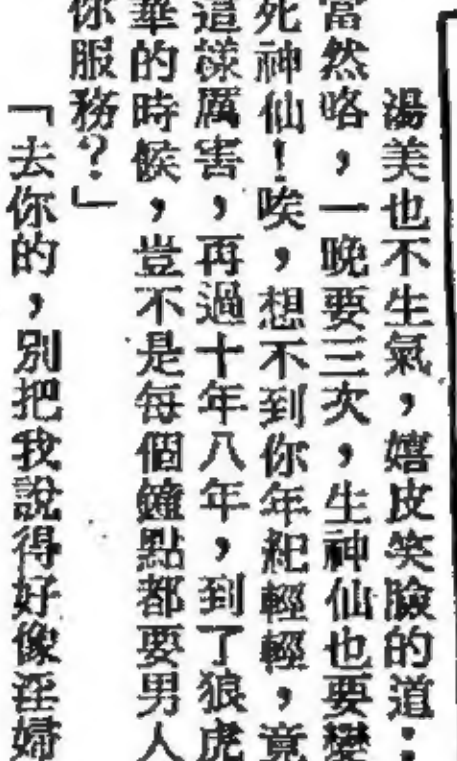 湯美也不生氣，嬉皮笑臉的道：
當然咯，一晚要三次，生神仙也要變
死神仙！唉，想不到你年紀輕輕，竟
這樣厲害，再過十年八年，到了狼虎
華的時候，豈不是每個鐘點都要男人
你服務？」
「去你的，別把我說得好像淫婦